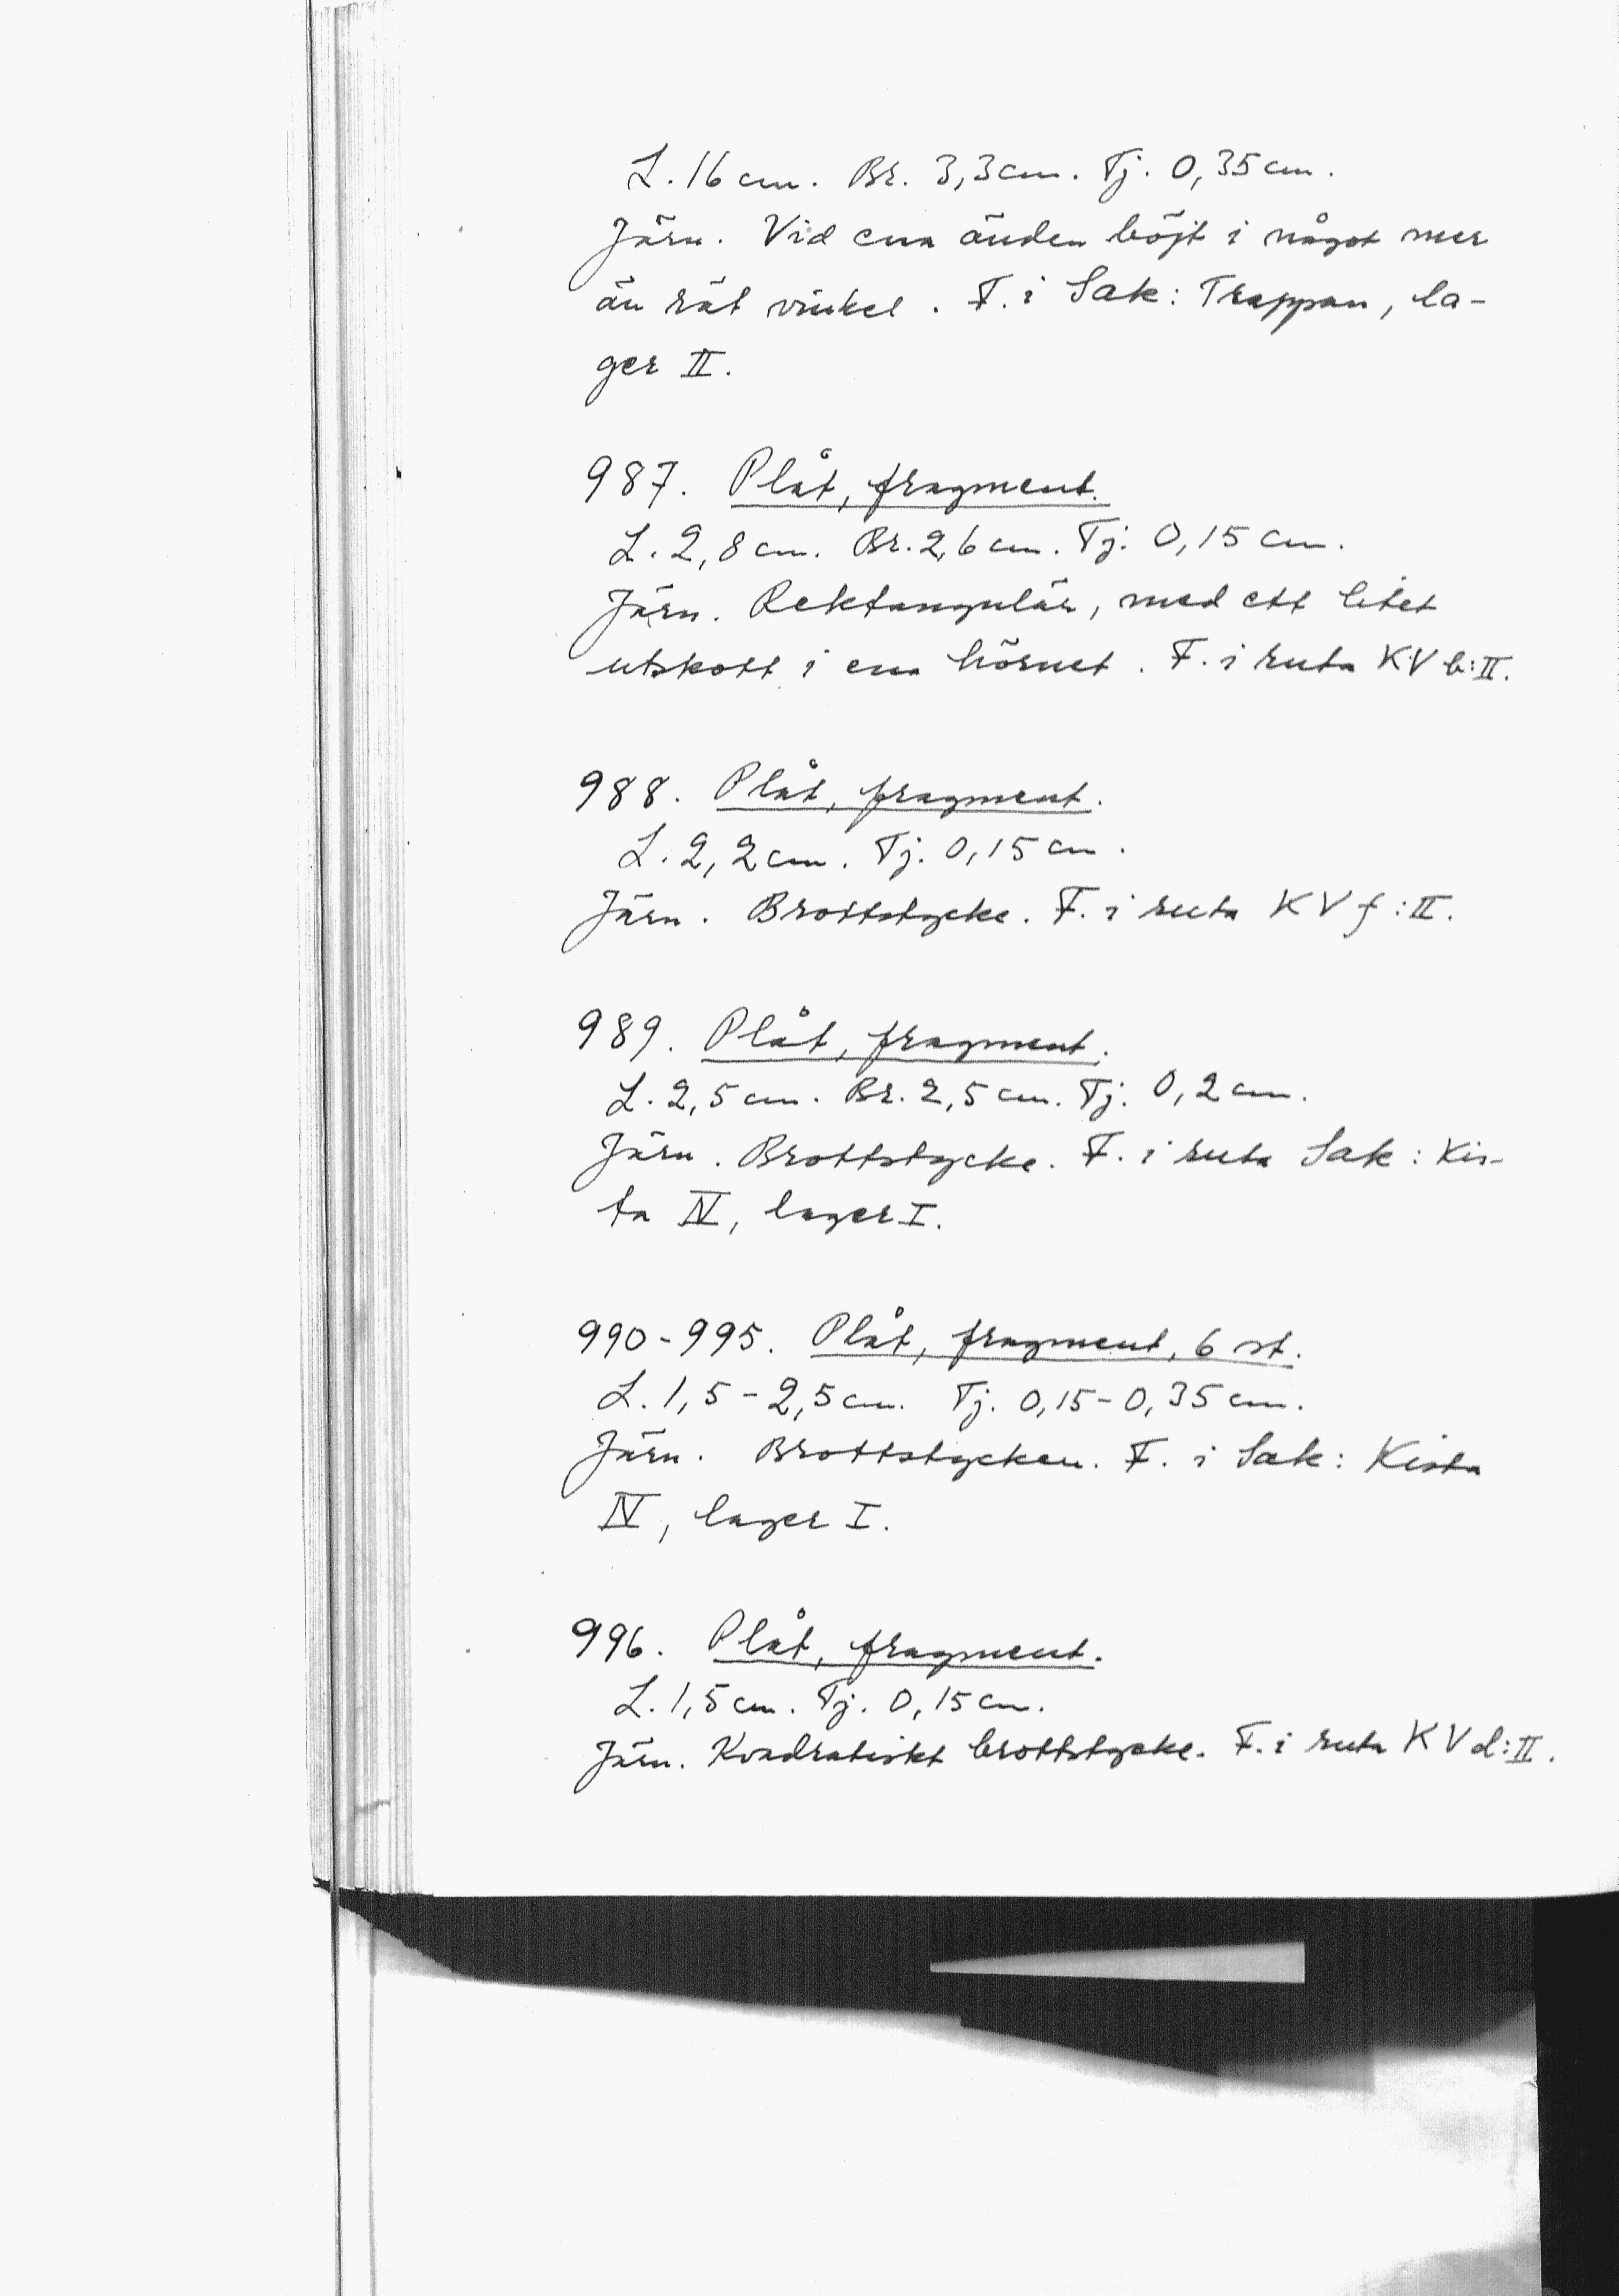 L. 16 cm. Br. 3,3 cm. Tj. 0,35 cm.
Järn. Vid ena änden böjt i något mer
än rät vinkel. F. i Sak: Trappan, la-
ger II.
987. Plåt, fragment.
L. 2,8 cm. Br. 2,6 cm. Tj. 0,15 cm.
Järn. Rektangulär, med ett litet
utskott i ena hörnet. F. i ruta KV b:II.
988. Plåt, fragment.
L. 2,2 cm. Tj. 0,15 cm.
Järn. Brottstycke. F. i ruta KV f:II.
989. Plåt, fragment.
L. 2,5 cm. Br. 2,5 cm. Tj. 0,2 cm.
Järn. Brottstycke. F. i ruta Sak: Kis-
ta IV, lager I.
990-995. Plåt, fragment, 6 st.
L. 1,5-2,5 cm. Tj. 0,15-0,35 cm.
Järn. Brottstycken. F. i Sak: Kista
IV, lager I.
996. Plåt, fragment.
L. 1,5 cm. Tj. 0,15 cm.
Järn. Kvadratiskt brottstycke. F. i ruta KV d:II.